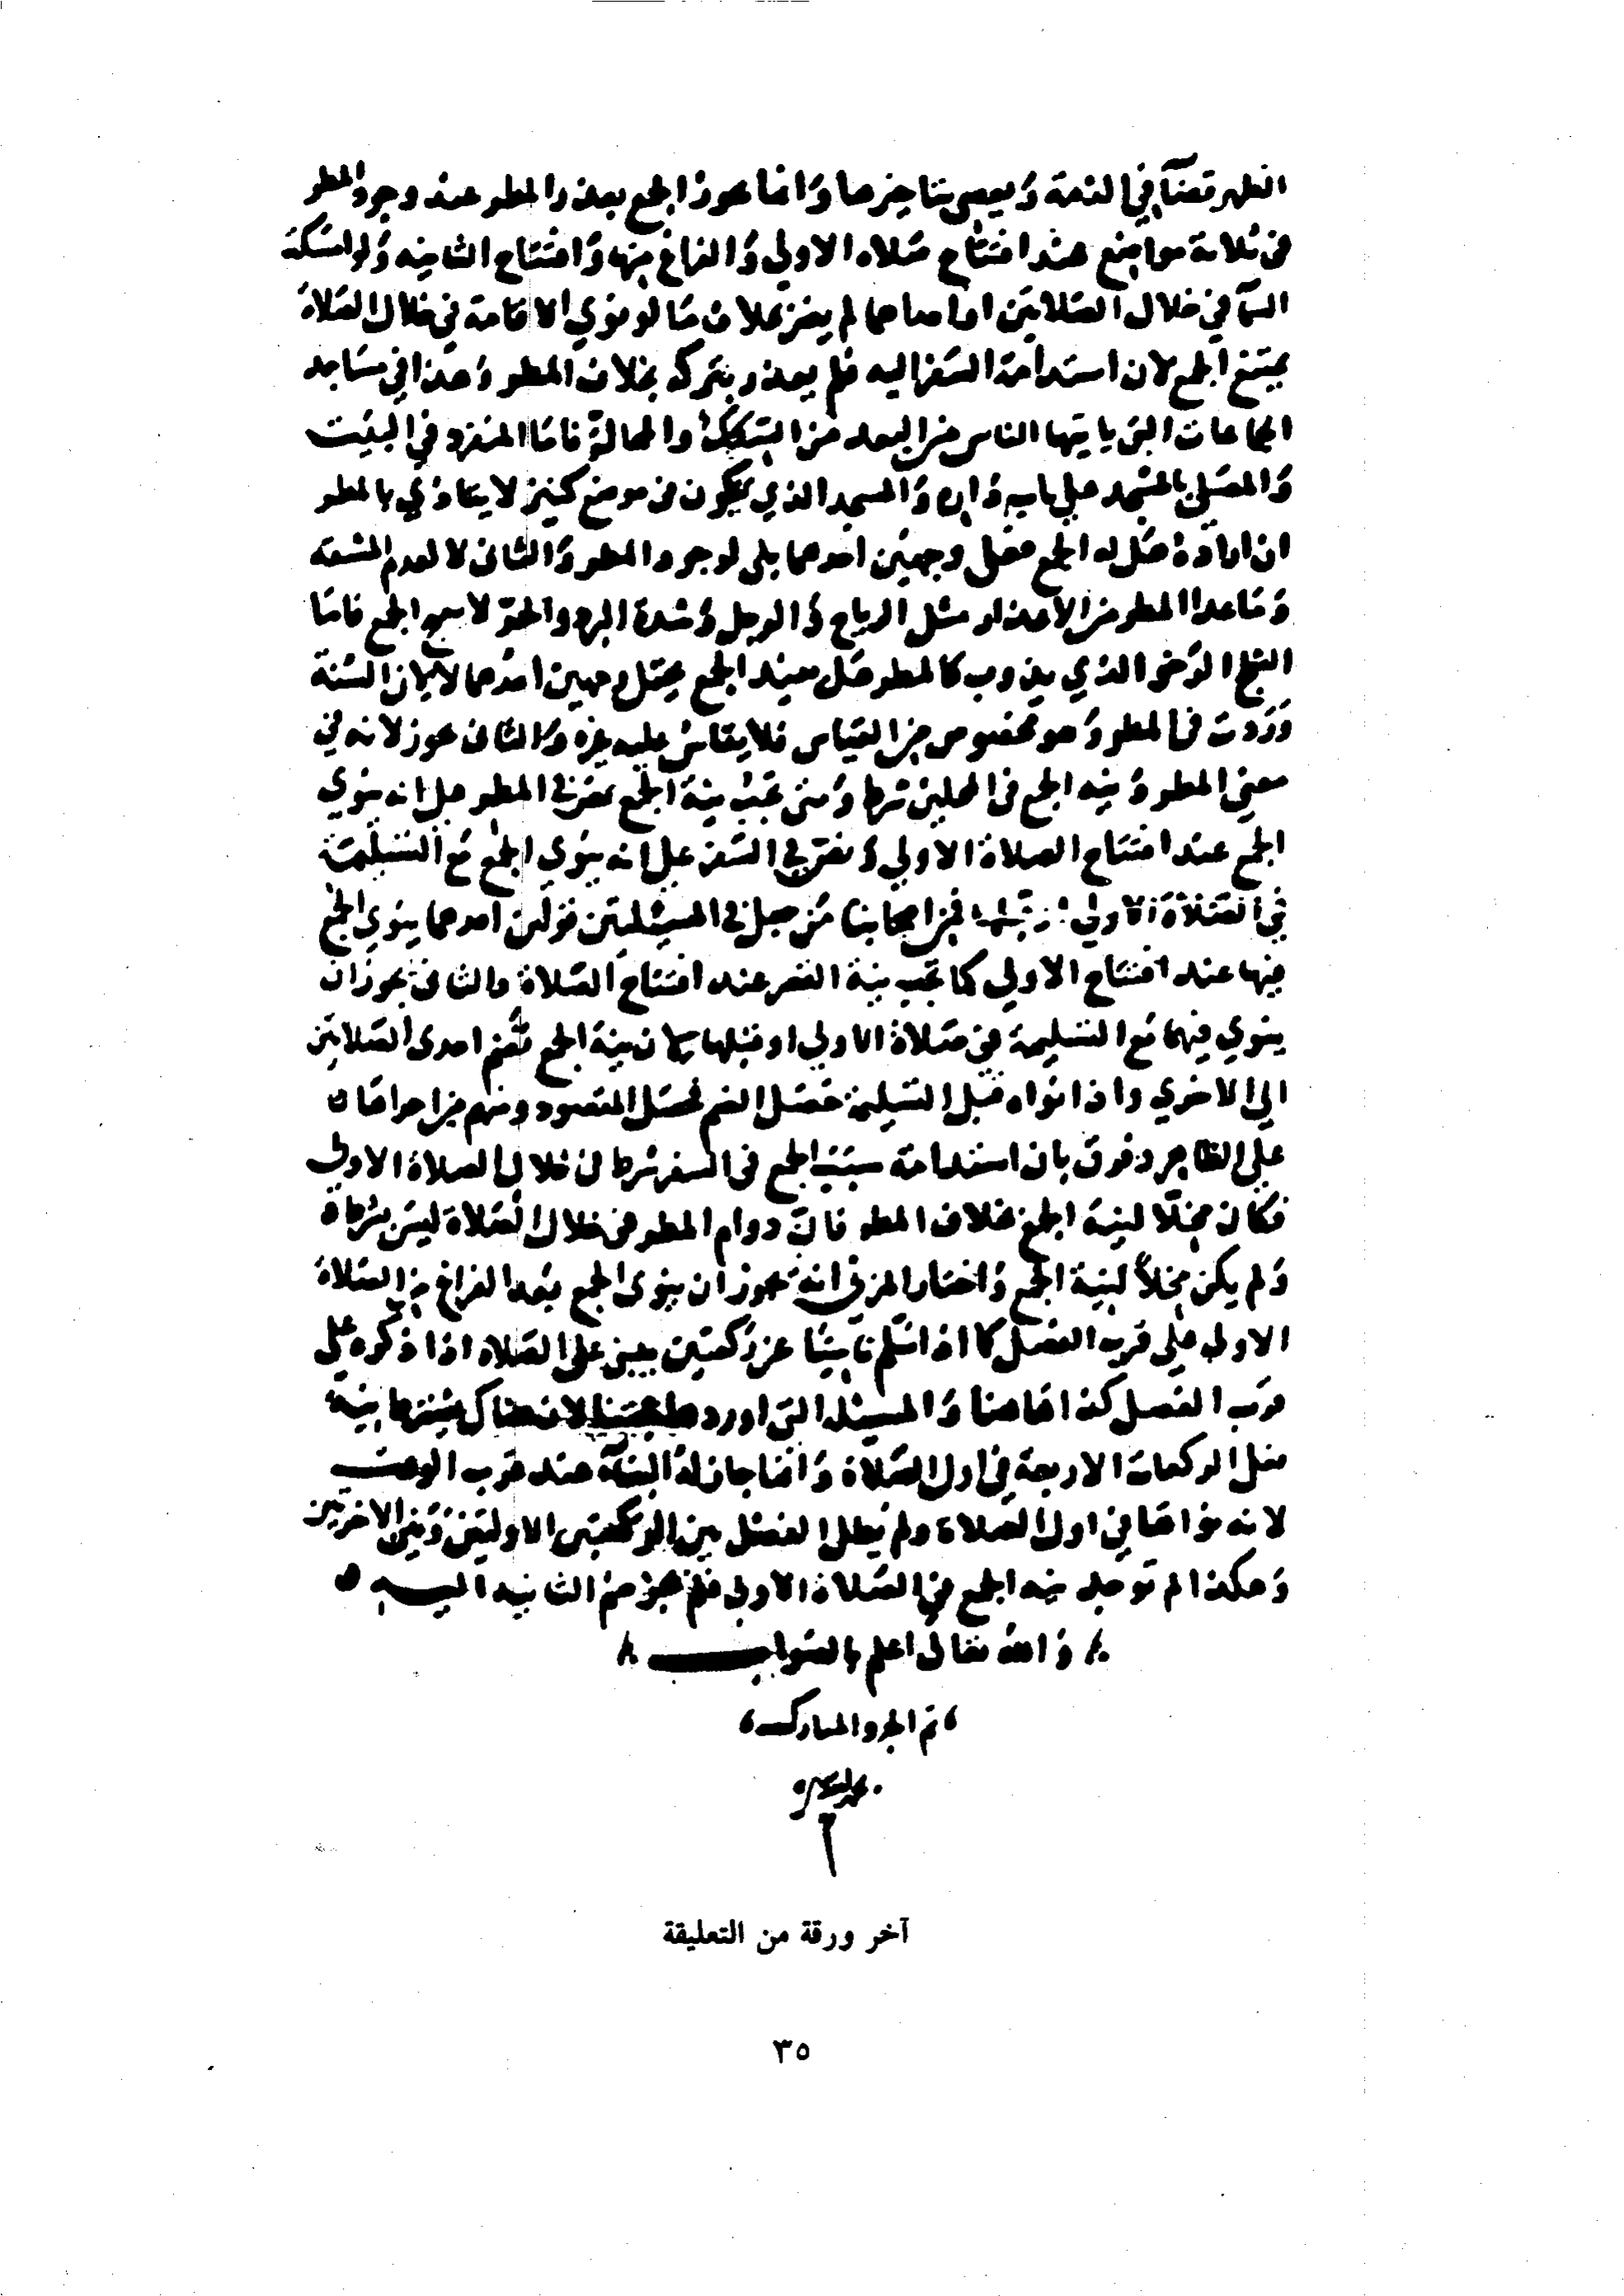 الظهر قضآ في الذمة وَيعصى بتاخيرها وَانما يجوز الجمع بعذر المطر عند وجود المطر
في ثلاثة مواضع عند افتتاح صلاه الاولى وَالفراغ منها وَافتتاح الثانيه وَلو امسكت
السمآ في خلال الصلاتين او احداهما لم يضر بخلاف مَا لو نوى الاقامة في خلال الصَلاة
يمتنع الجمع لان استدامة السَفر اليه فلم يعذر بتركه بخلاف المطر وَهذا في مسَاجد
الجماعات التي ياتيها الناس من البعد من السكك والمحالّ فامّا المنفرد في البيت
وَالمصَلي بالمسَجد على باب دَاره وَالمسجد الذي يكون في موضع كنين لا يتاذى بالمطر
ان اراد هَل له الجمع فعلى وجهين احدهما بلى لوجود المطر وَالثاني لا لعدم المشقة
وَمَا عدا المطر من الاعذار مثل الرياح وَالوحل وَشدة البرد والحرّ لا يبيح الجمع فامّا
الثلج الرَخو الذي يذوب كالمطر هَل يفيد الجمع يحتمل وجهين احَدهما لا لان السُنة
وَرَدت في المطر وَهو مخصوص من القياس فلا يقاس عليه غيره وَالثاني يجوز لانه في
معنى المطر وَنيه الجمع في المحلين شرط وَمتى تجب نية الجمع نصّ في المطر على انه ينوي
الجمع عند افتتاح الصلاة الاولى وَنص في السَفر على انه ينوي الجمع مَع التسليمة
في الصَلاة الاولى او قبلها فمن اصحابنا مَن جعل في المسئلتين قولين احدهما ينوي الجمع
فيها عند افتتاح الاولى كما تجب نية القصر عند افتتاح الصَلاة والثاني يجوز ان
ينوي فيهما مَع التسَليمة في صَلاة الاولى او قبلها لان نية الجمع لضم احدى الصَلاتين
الى الاخرى واذا نواه قبل التسَليمة حَصَل الضم فحصَل المقصود ومنهم من اجراهمَا
على الظاهر وفرق بان استدامة سبب الجمع في السفر شرط في خلال الصلاة الاولى
فكان محلًا لنية الجمع بخلاف المطر فان دوام المطر في خلال الصَلاة ليسَ بشرط
وَلم يكن محلاً لنية الجمع وَاختار المزني انه يجوز ان ينوي الجمع بَعد الفراغ من الصَلاة
الاولى على قرب الفصَل كما اذا سَلم ناسيًا عن ركعتين يبني على الصَلاه اذا ذكره على
قرب الفصل كذا هَاهنا وَالمسئلة التي اورد حجتنا لان هناك يشترط نية
فعل الركعات الاربعة في اول الصَلاة وَانما جاز لهُ البنآء عند قرب الوقت
لانه نواهَا في اول الصَلاة ولم يطل الفصَل بين الركعتين الاوليَين وَبين الاخريين
وَهكذا لم توجد نيه الجمع في الصَلاة الاولى فلم يجز ضم الثانيه اليه
وَالله تعالى اعلم بالصَواب
تم الجزو المبارك
آخر ورقة من التعليقة
٣٥